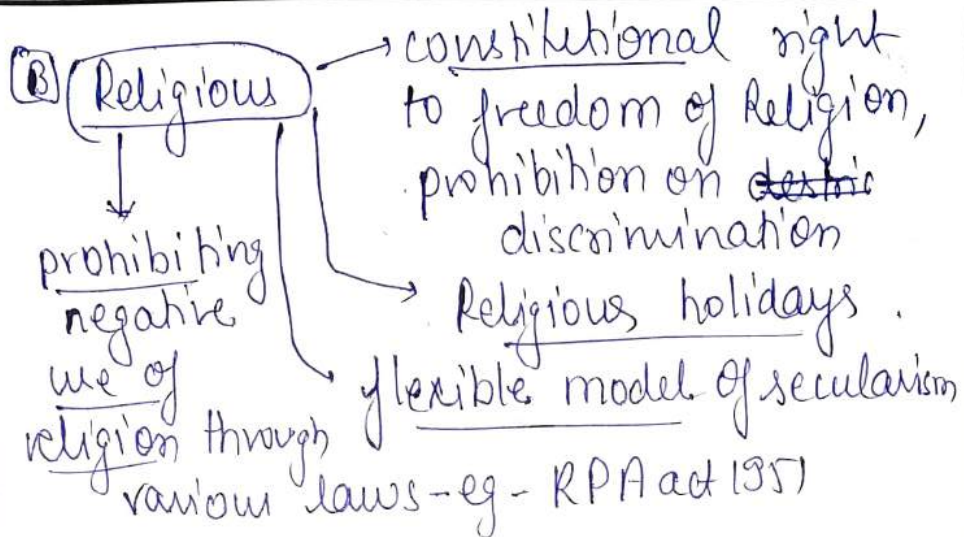 B Religious
constitutional right
to freedom of Religion,
prohibition on
discrimination
Religious holidays.
flexible model of secularism
prohibiting
negative
use of
religion through
various laws - eg - RPA act 1951